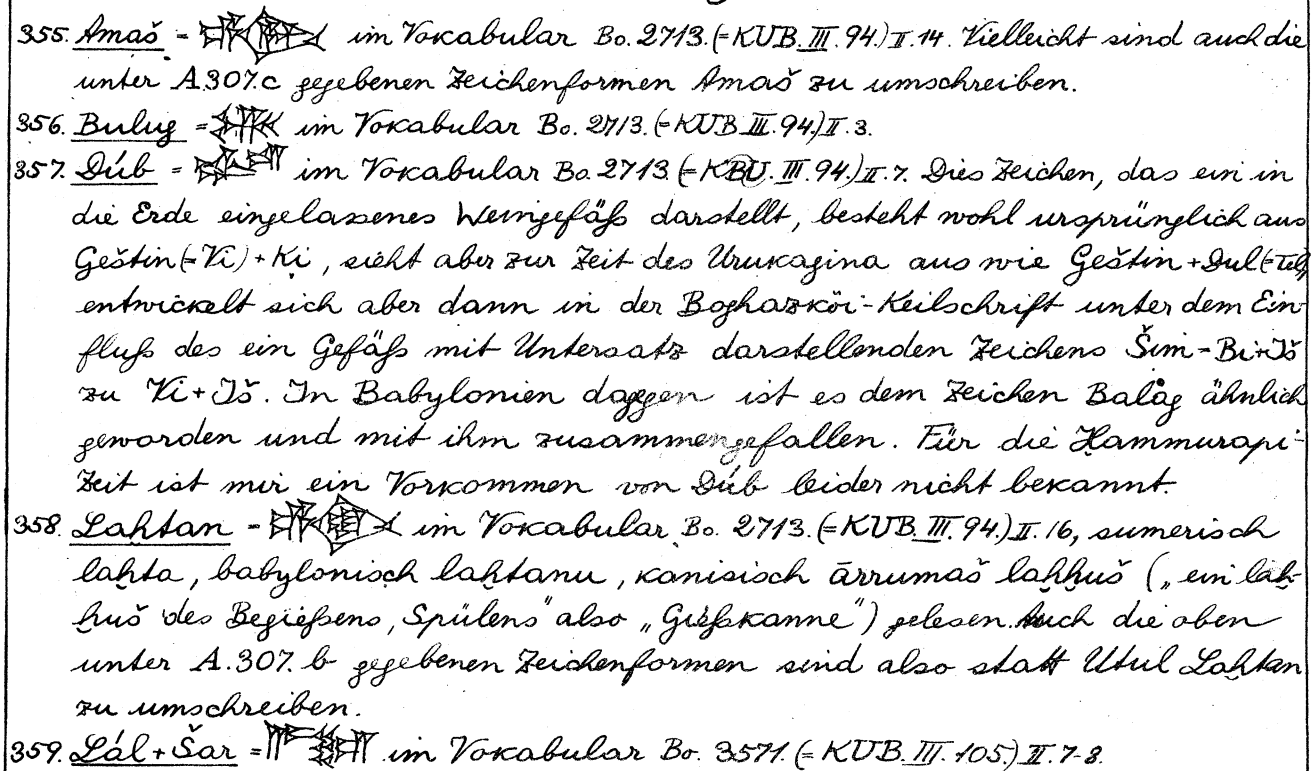 355. Amaš = im Vokabular Bo. 2713. (=KUB. III. 94.) II. 14. Vielleicht sind auch die
unter A.307.c gegebenen Zeichenformen Amaš zu umschreiben.
356. Bulug = im Vokabular Bo. 2713. (=KUB. III. 94.) II. 3.
357. Dúb = im Vokabular Bo. 2713. (=KBU. III. 94.) II. 7. Dies Zeichen, das ein in
die Erde eingelassenes Weingefäß darstellt, besteht wohl ursprünglich aus
Geštin (=Vi) + Ki, sieht aber zur Zeit des Urukagina aus wie Geštin + Dul (=Tel),
entwickelt sich aber dann in der Boghazköi-Keilschrift unter dem Ein-
fluß des ein Gefäß mit Untersatz darstellenden Zeichens Šim = Bi+Iš
zu Vi + Iš. In Babylonien dagegen ist es dem Zeichen Balag ähnlich
geworden und mit ihm zusammengefallen. Für die Hammurapi-
Zeit ist mir ein Vorkommen von Dúb leider nicht bekannt.
358. Laḫtan = im Vokabular Bo. 2713. (=KUB. III. 94.) II. 16, sumerisch
laḫta, babylonisch laḫtanu, kanisisch ārrumaš laḫḫuš („ein laḫ-
ḫuš des Begießens, Spülens" also „Gießkanne") gelesen. Auch die oben
unter A.307. b gegebenen Zeichenformen sind also statt Utul Laḫtan
zu umschreiben.
359. Lál + Šar = im Vokabular Bo. 3571. (=KUB. III. 105.) II. 7-8.